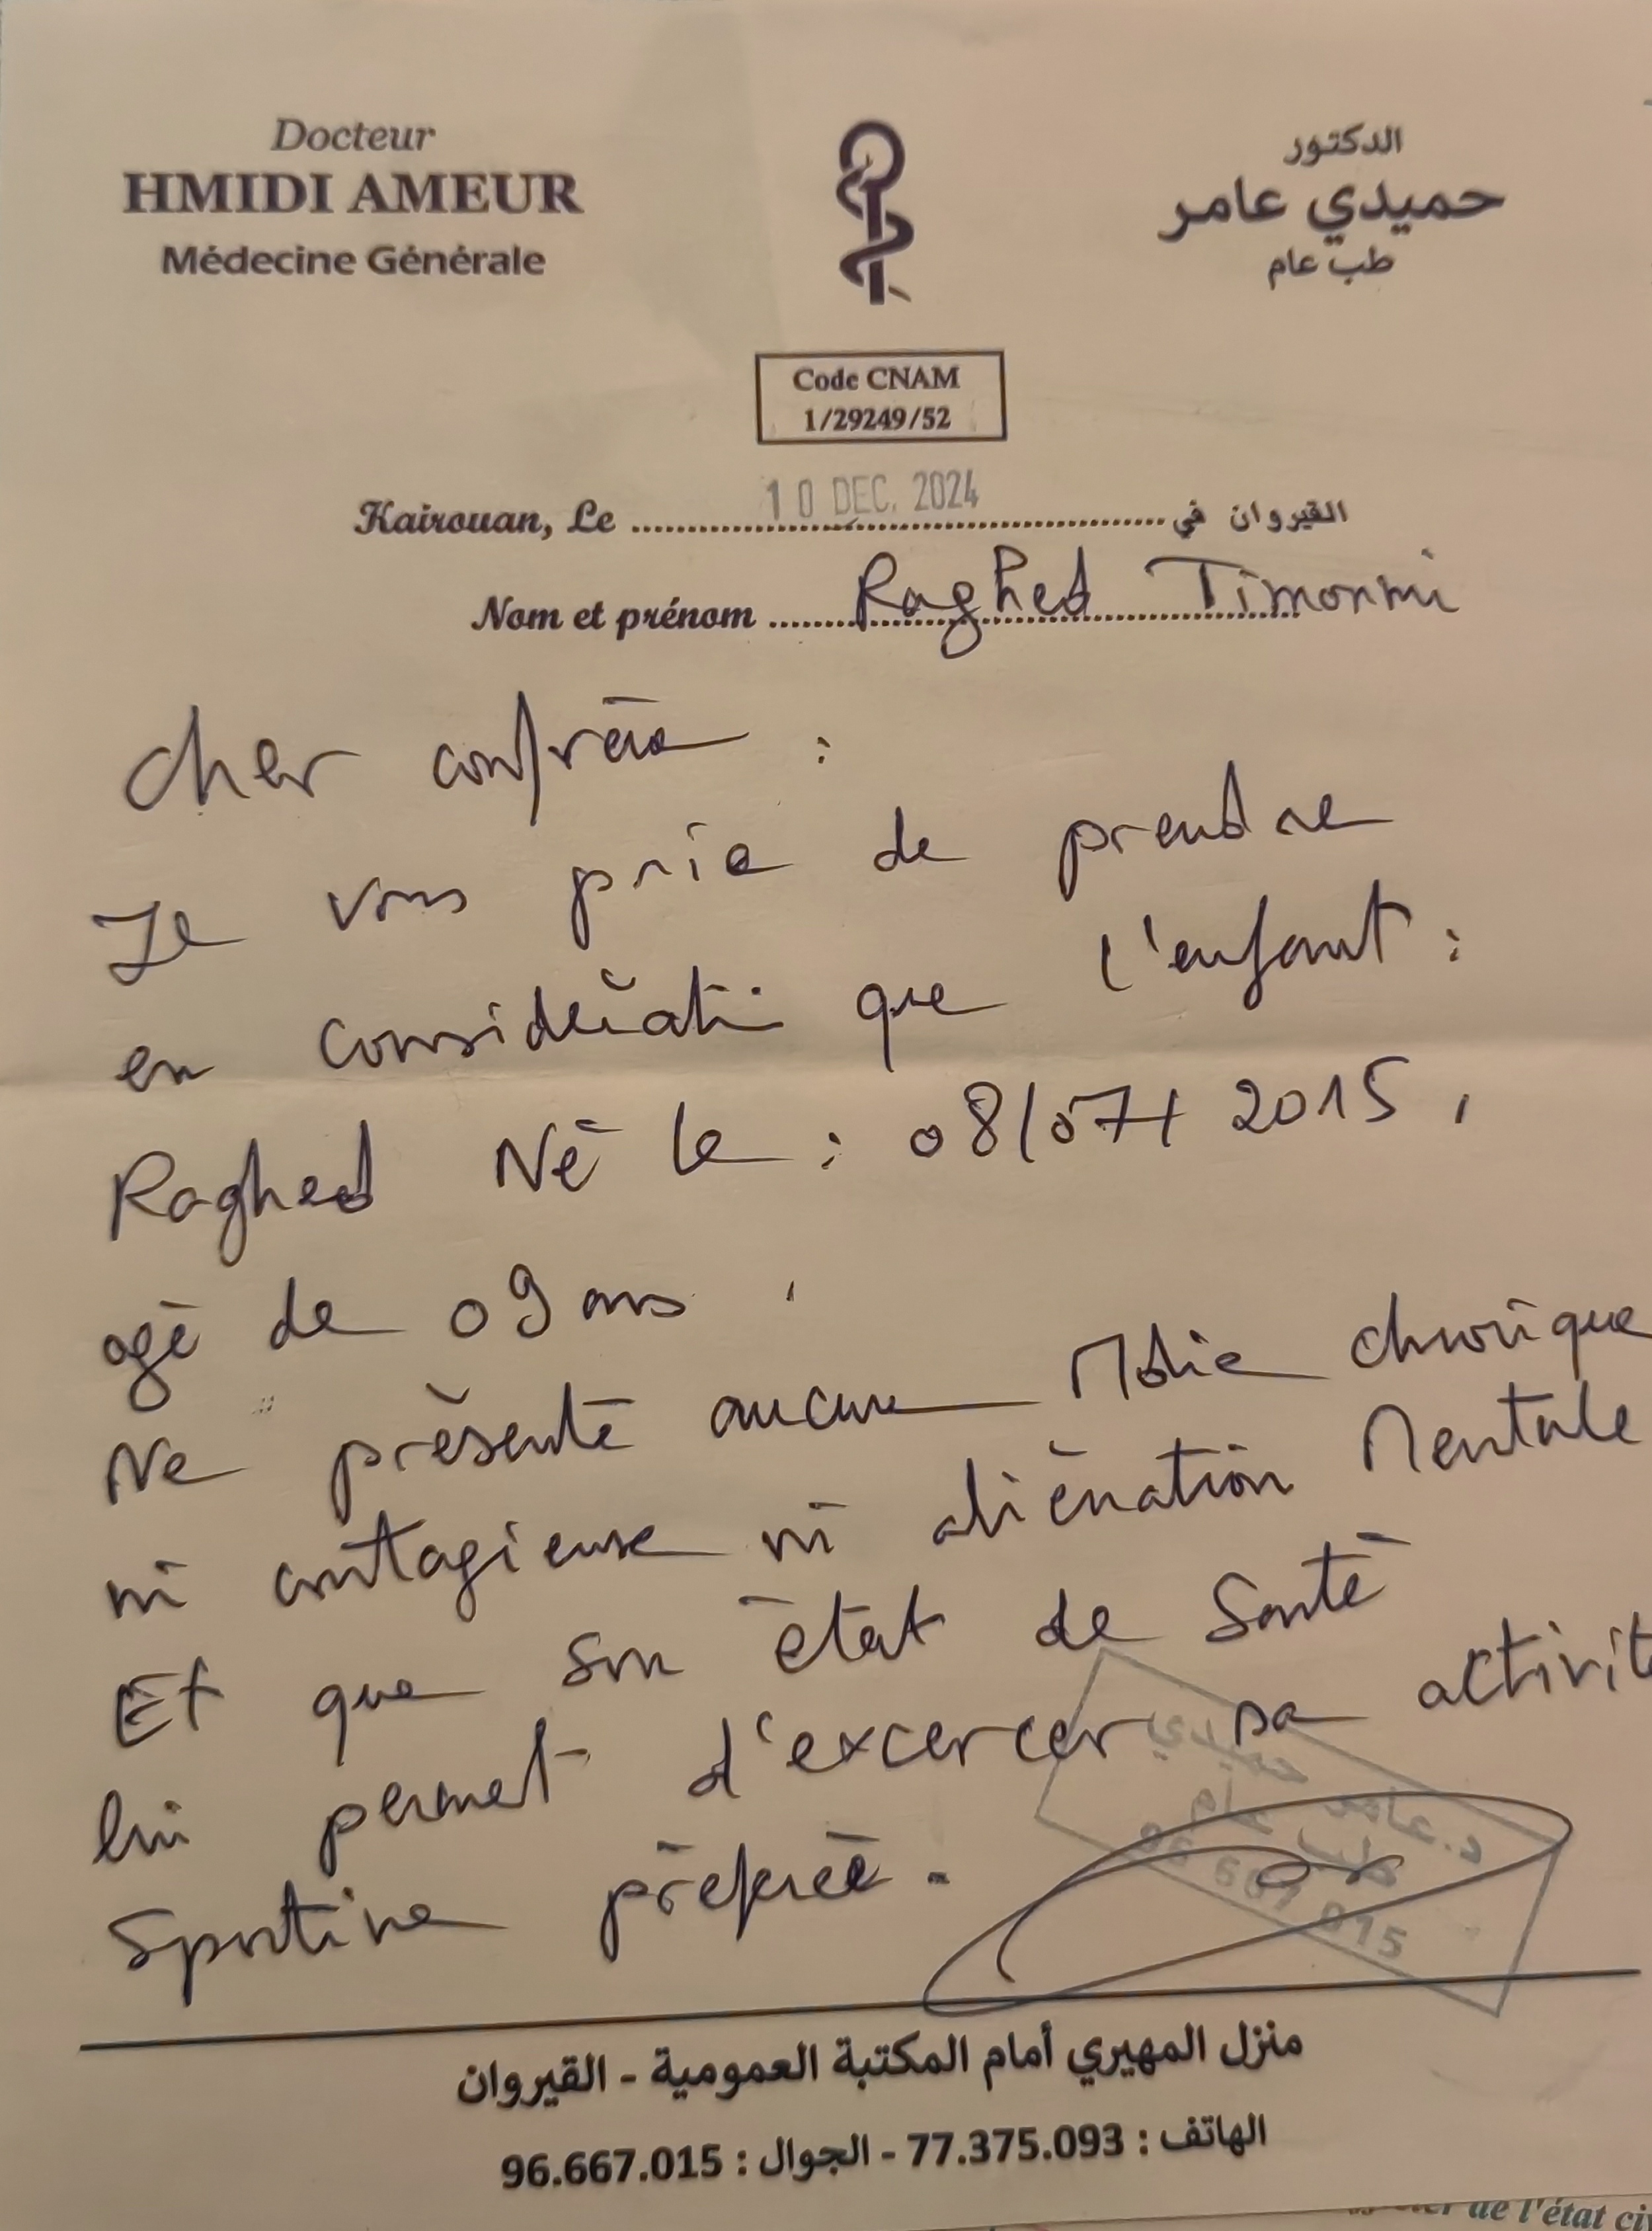 Docteur
HMIDI AMEUR
Médecine Générale
الدكتور
حميدي عامر
طب عام
Code CNAM
1/29249/52
Kairouan, Le 10 DEC. 2024 القيروان في
Nom et prénom Raghed Timoumi
Cher confrère :
Je vous prie de prendre
en considérati: que l'enfant :
Raghed Né le : 08/07/2015,
agé de 09 ans,
Ne présente aucune Mdie chronique
ni contagieuse ni aliénation Mentale
Et que son état de Santé
lui permet d'excercer sa activit
Sportive préférée.
د.عامر حميدي
طب عام
96 667 015
منزل المهيري أمام المكتبة العمومية - القيروان
الهاتف : 77.375.093 - الجوال : 96.667.015
de l'état ci